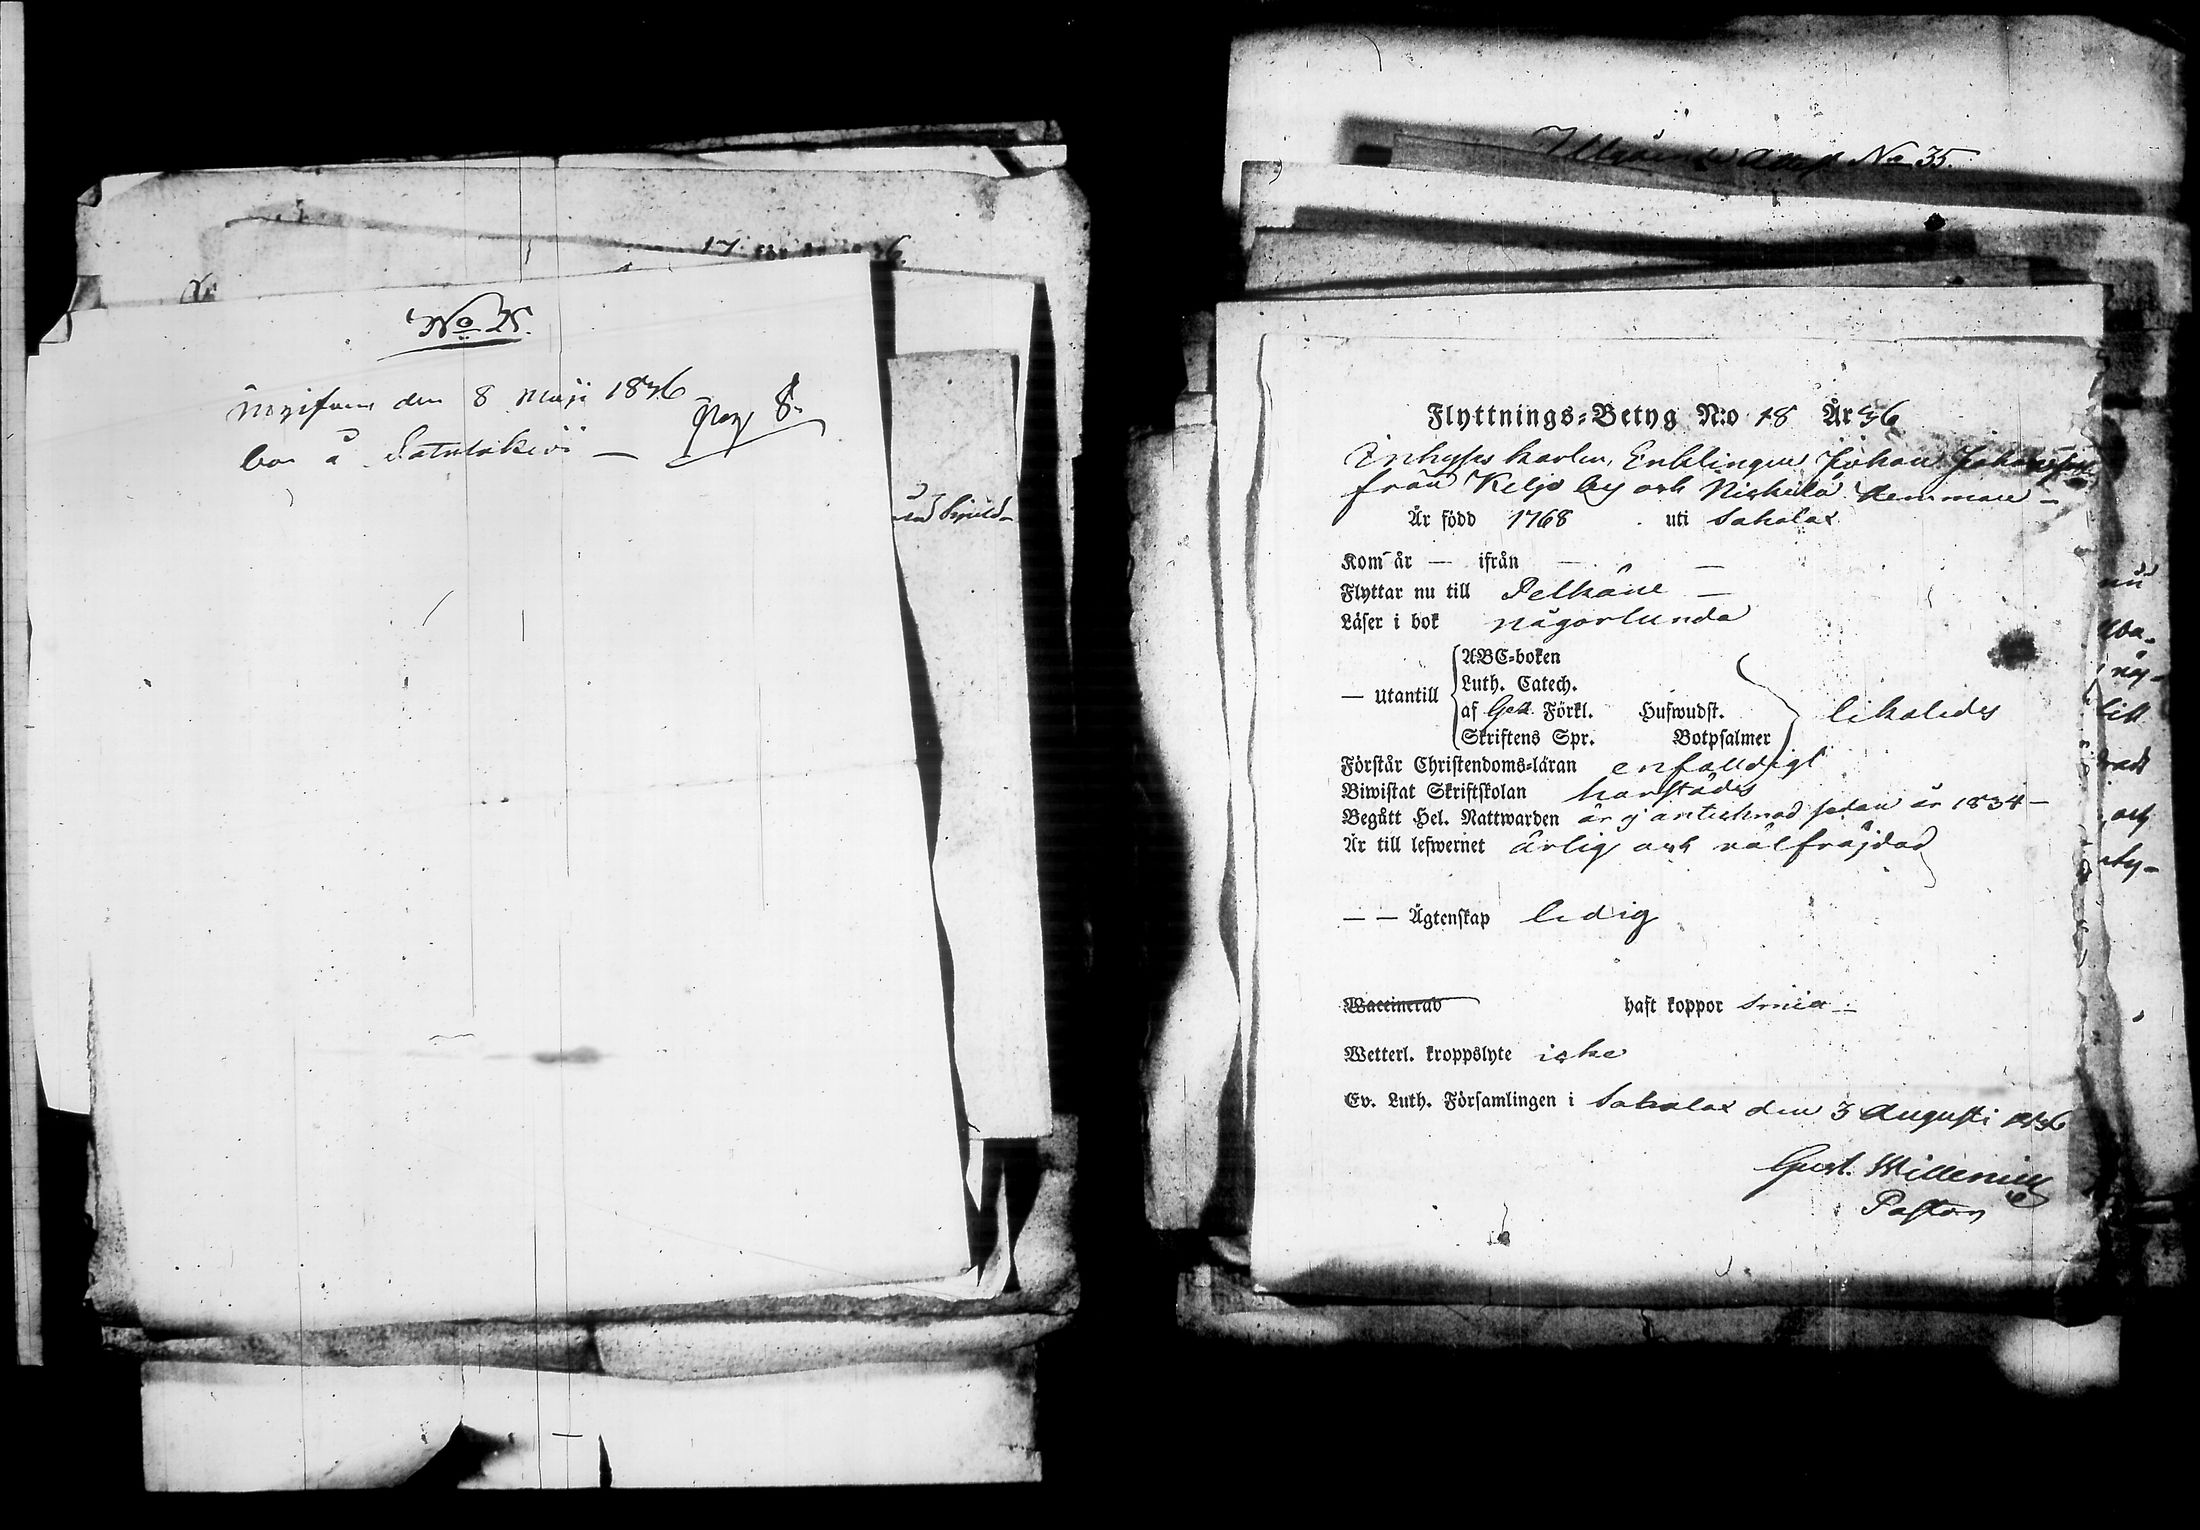 No 25.
den 8 Maji 1836
bor å
17 för År 1836
No 35.
Flyttnings-Betyg N:o 18 År 36
Inhyses karlen, Enklingen Johan Johansson
från Keljo by och Niskila hemman —
Är född 1768 uti Sahalax
Kom år — ifrån — —
Flyttar nu till Pelkäne —
Läser i bok någorlunda
— utantill
ABC-boken
Luth. Catech.
af Gez. Förkl. Hufwudst.
Skriftens Spr. Botpsalmer
likaledes
Förstår Christendoms-läran enfaldigt
Biwistat Skriftskolan harstädes
Begått Hel. Nattwarden är ej antecknad sedan år 1834 —
Är till lefwernet ärlig och välfräjdad
— — Ägtenskap ledig
Waccinerad haft koppor smia —
Wetterl. kroppslyte icke
Ev. Luth. Församlingen i Sahalax den 3 Augusti 1836
Gust. Willenius
Pastor